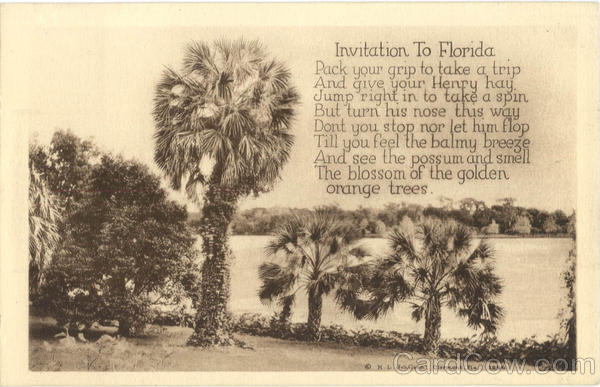 Invitation To Florida
Pack your grip to take a trip
And give your Henry hay
Jump right in to take a spin
But turn his nose this way
Dont you stop nor let him flop
Till you feel the balmy breeze
And see the possum and smell
The blossom of the golden
orange trees.
© H. L.
CardCow.com